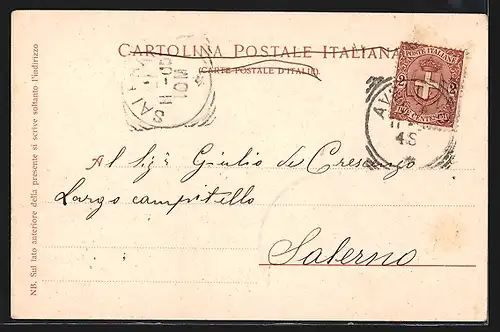 CARTOLINA POSTALE ITALIANA
(CARTE POSTALE D'ITALIE)
POSTE ITALIANE
2 2
DUE CENTESIMI
SALERNO
11-00
10M
AV
11
4S
Al Sigr Giulio de Crescenzo
Largo campitello
Salerno
NB. Sul lato anteriore della presente si scrive soltanto l'indirizzo